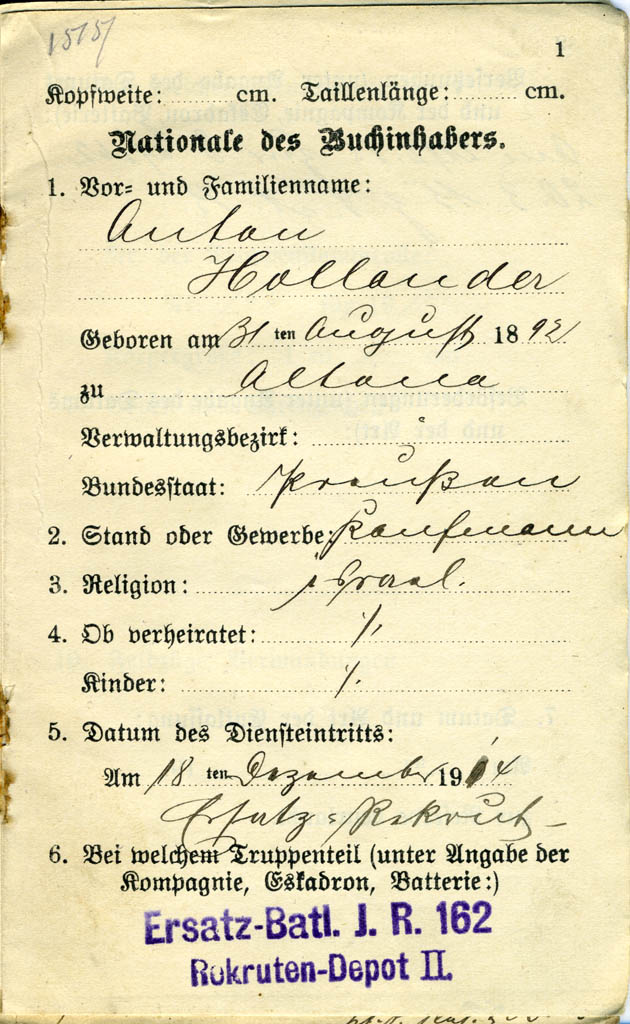 1515/
1
Kopfweite: cm. Taillenlänge: cm.
Nationale des Buchinhabers.
1. Vor- und Familienname:
Anton
Hollander
Geboren am 31 ten August 1892
zu Altona
Verwaltungsbezirk:
Bundesstaat: Preußen
2. Stand oder Gewerbe: Kaufmann
3. Religion: israel.
4. Ob verheiratet: /.
Kinder: /.
5. Datum des Diensteintritts:
Am 18 ten Dezember 1914
Ersatz-Rekrut
6. Bei welchem Truppenteil (unter Angabe der
Kompagnie, Eskadron, Batterie:)
Ersatz-Batl. J. R. 162
Rekruten-Depot II.